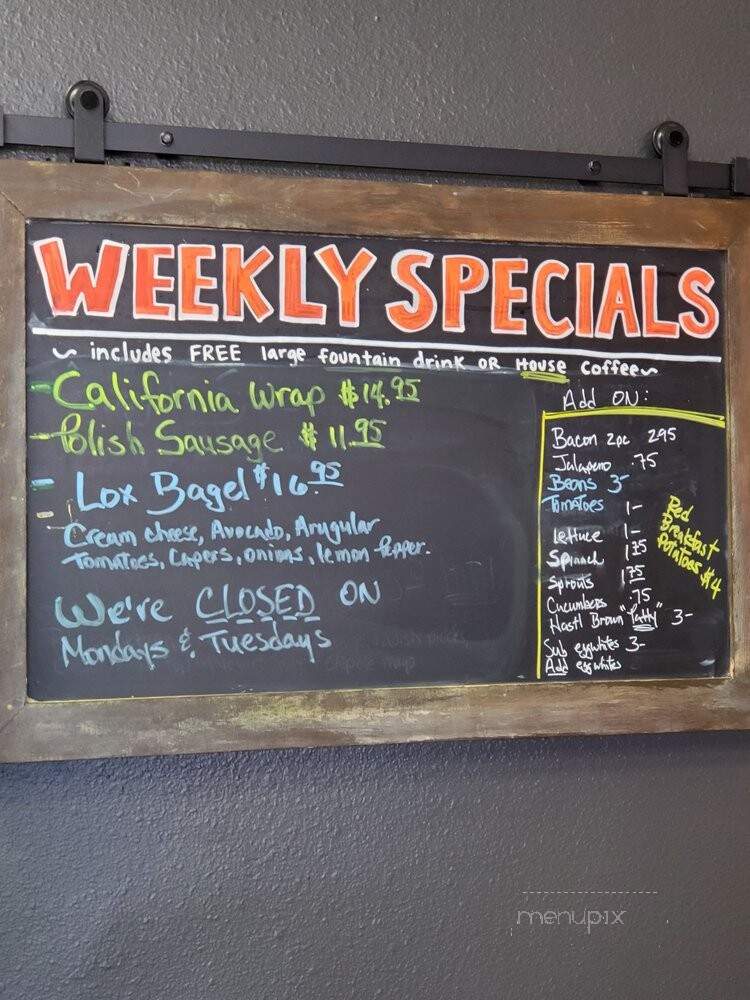 WEEKLY SPECIALS
~ includes FREE large fountain drink OR House Coffee ~
- California Wrap $14.95
- Polish Sausage $11.95
- Lox Bagel $16.95
Cream cheese, Avocado, Arugular
Tomatoes, Capers, onions, lemon Pepper.
We're CLOSED ON
Mondays & Tuesdays
Add ON:
Bacon 2pc 295
Jalapeno .75
Beans 3-
Tomatoes 1-
lettuce 1-
Spinach 135
Sprouts 175
Cucumbers .75
Hash Brown "Patty" 3-
Sub eggwhites 3-
Add eggwhites
Red
Breakfast
Potatoes $4
menupix